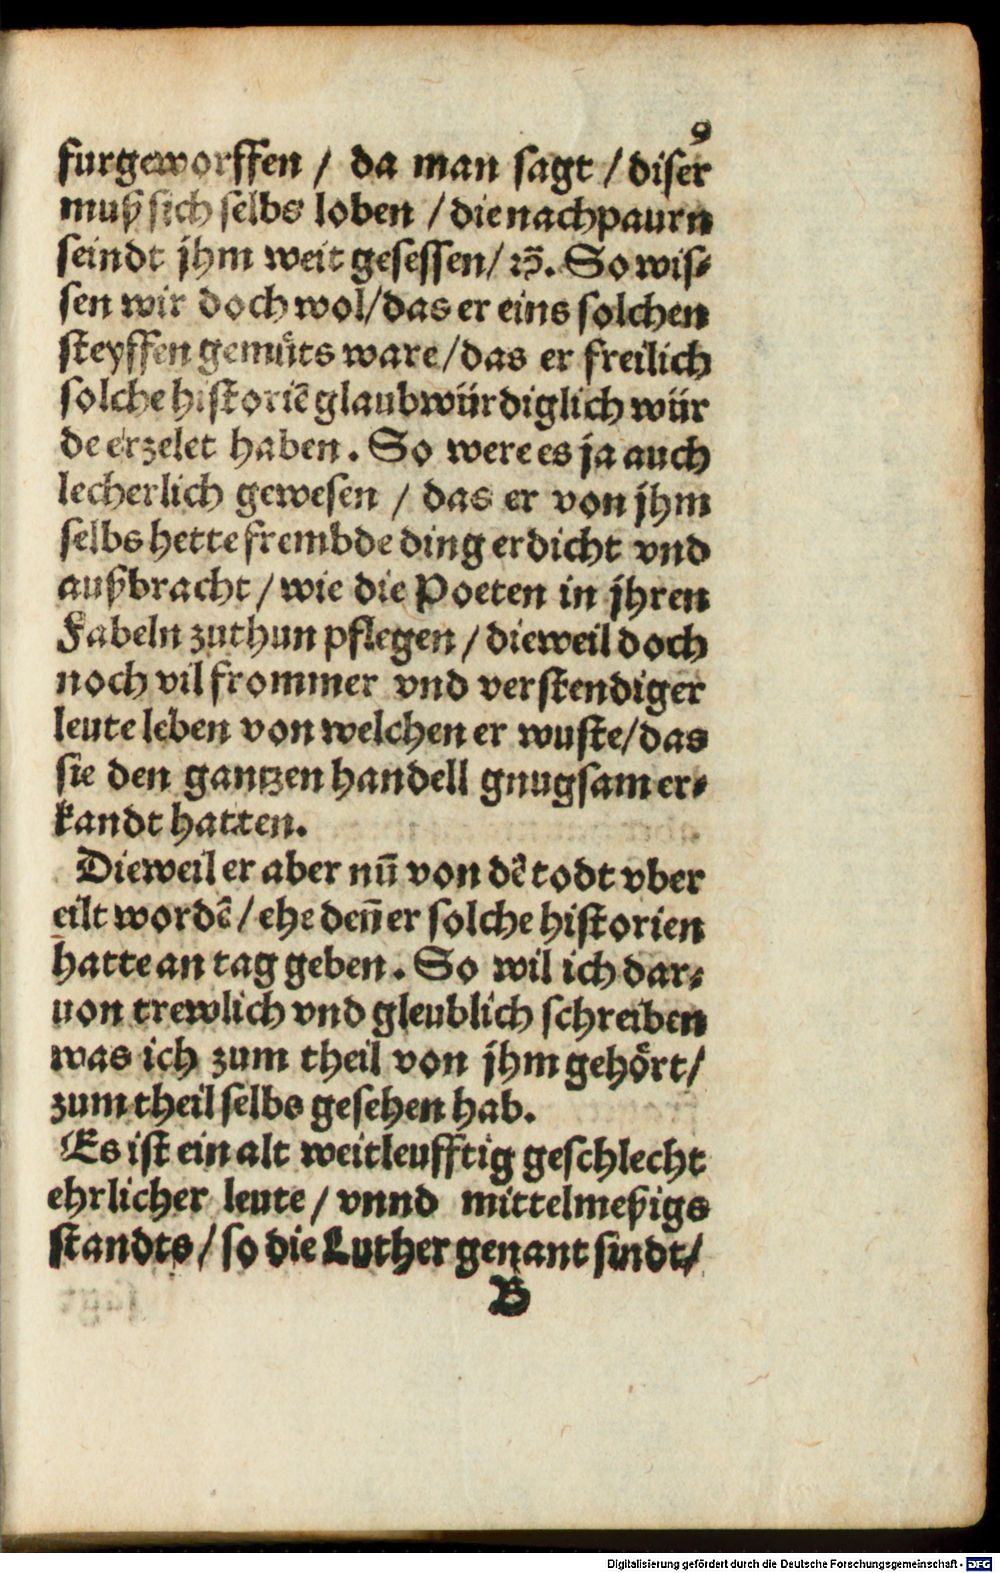 9
furgeworffen / da man sagt / diser
muß sich selbs loben / die nachpaurn
seindt jhm weit gesessen / ꝛc̃. So wis⸗
sen wir doch wol / das er eins solchen
steyffen gemuͤts ware / das er freilich
solche historiẽ glaubwürdiglich wür
de erzelet haben. So were es ja auch
lecherlich gewesen / das er von jhm
selbs hette frembde ding erdicht vnd
außbracht / wie die Poeten in jhren
Fabeln zuthun pflegen / dieweil doch
noch vil frommer vnd verstendiger
leute leben von welchen er wuste / das
sie den gantzen handell gnugsam er⸗
kandt hatten.
Dieweil er aber nũ von dẽ todt vber
eilt wordẽ / ehe deñ er solche historien
hatte an tag geben. So wil ich dar⸗
uon trewlich vnd gleublich schreiben
was ich zum theil von jhm gehoͤrt /
zum theil selbs gesehen hab.
Es ist ein alt weitleufftig geschlecht
ehrlicher leute / vnnd mittelmeßigs
standts / so die Luther genant sindt /
B
Digitalisierung gefördert durch die Deutsche Forschungsgemeinschaft - DFG